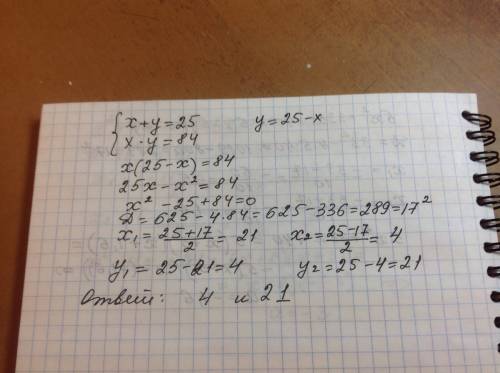 { x+y=25 y=25-x
x·y=84
x(25-x)=84
25x-x²=84
x²-25+84=0
D=625-4·84=625-336=289=17²
x₁=25+17/2=21 x₂=25-17/2=4
y₁=25-21=4 y₂=25-4=21
Ответ: 4 и 21